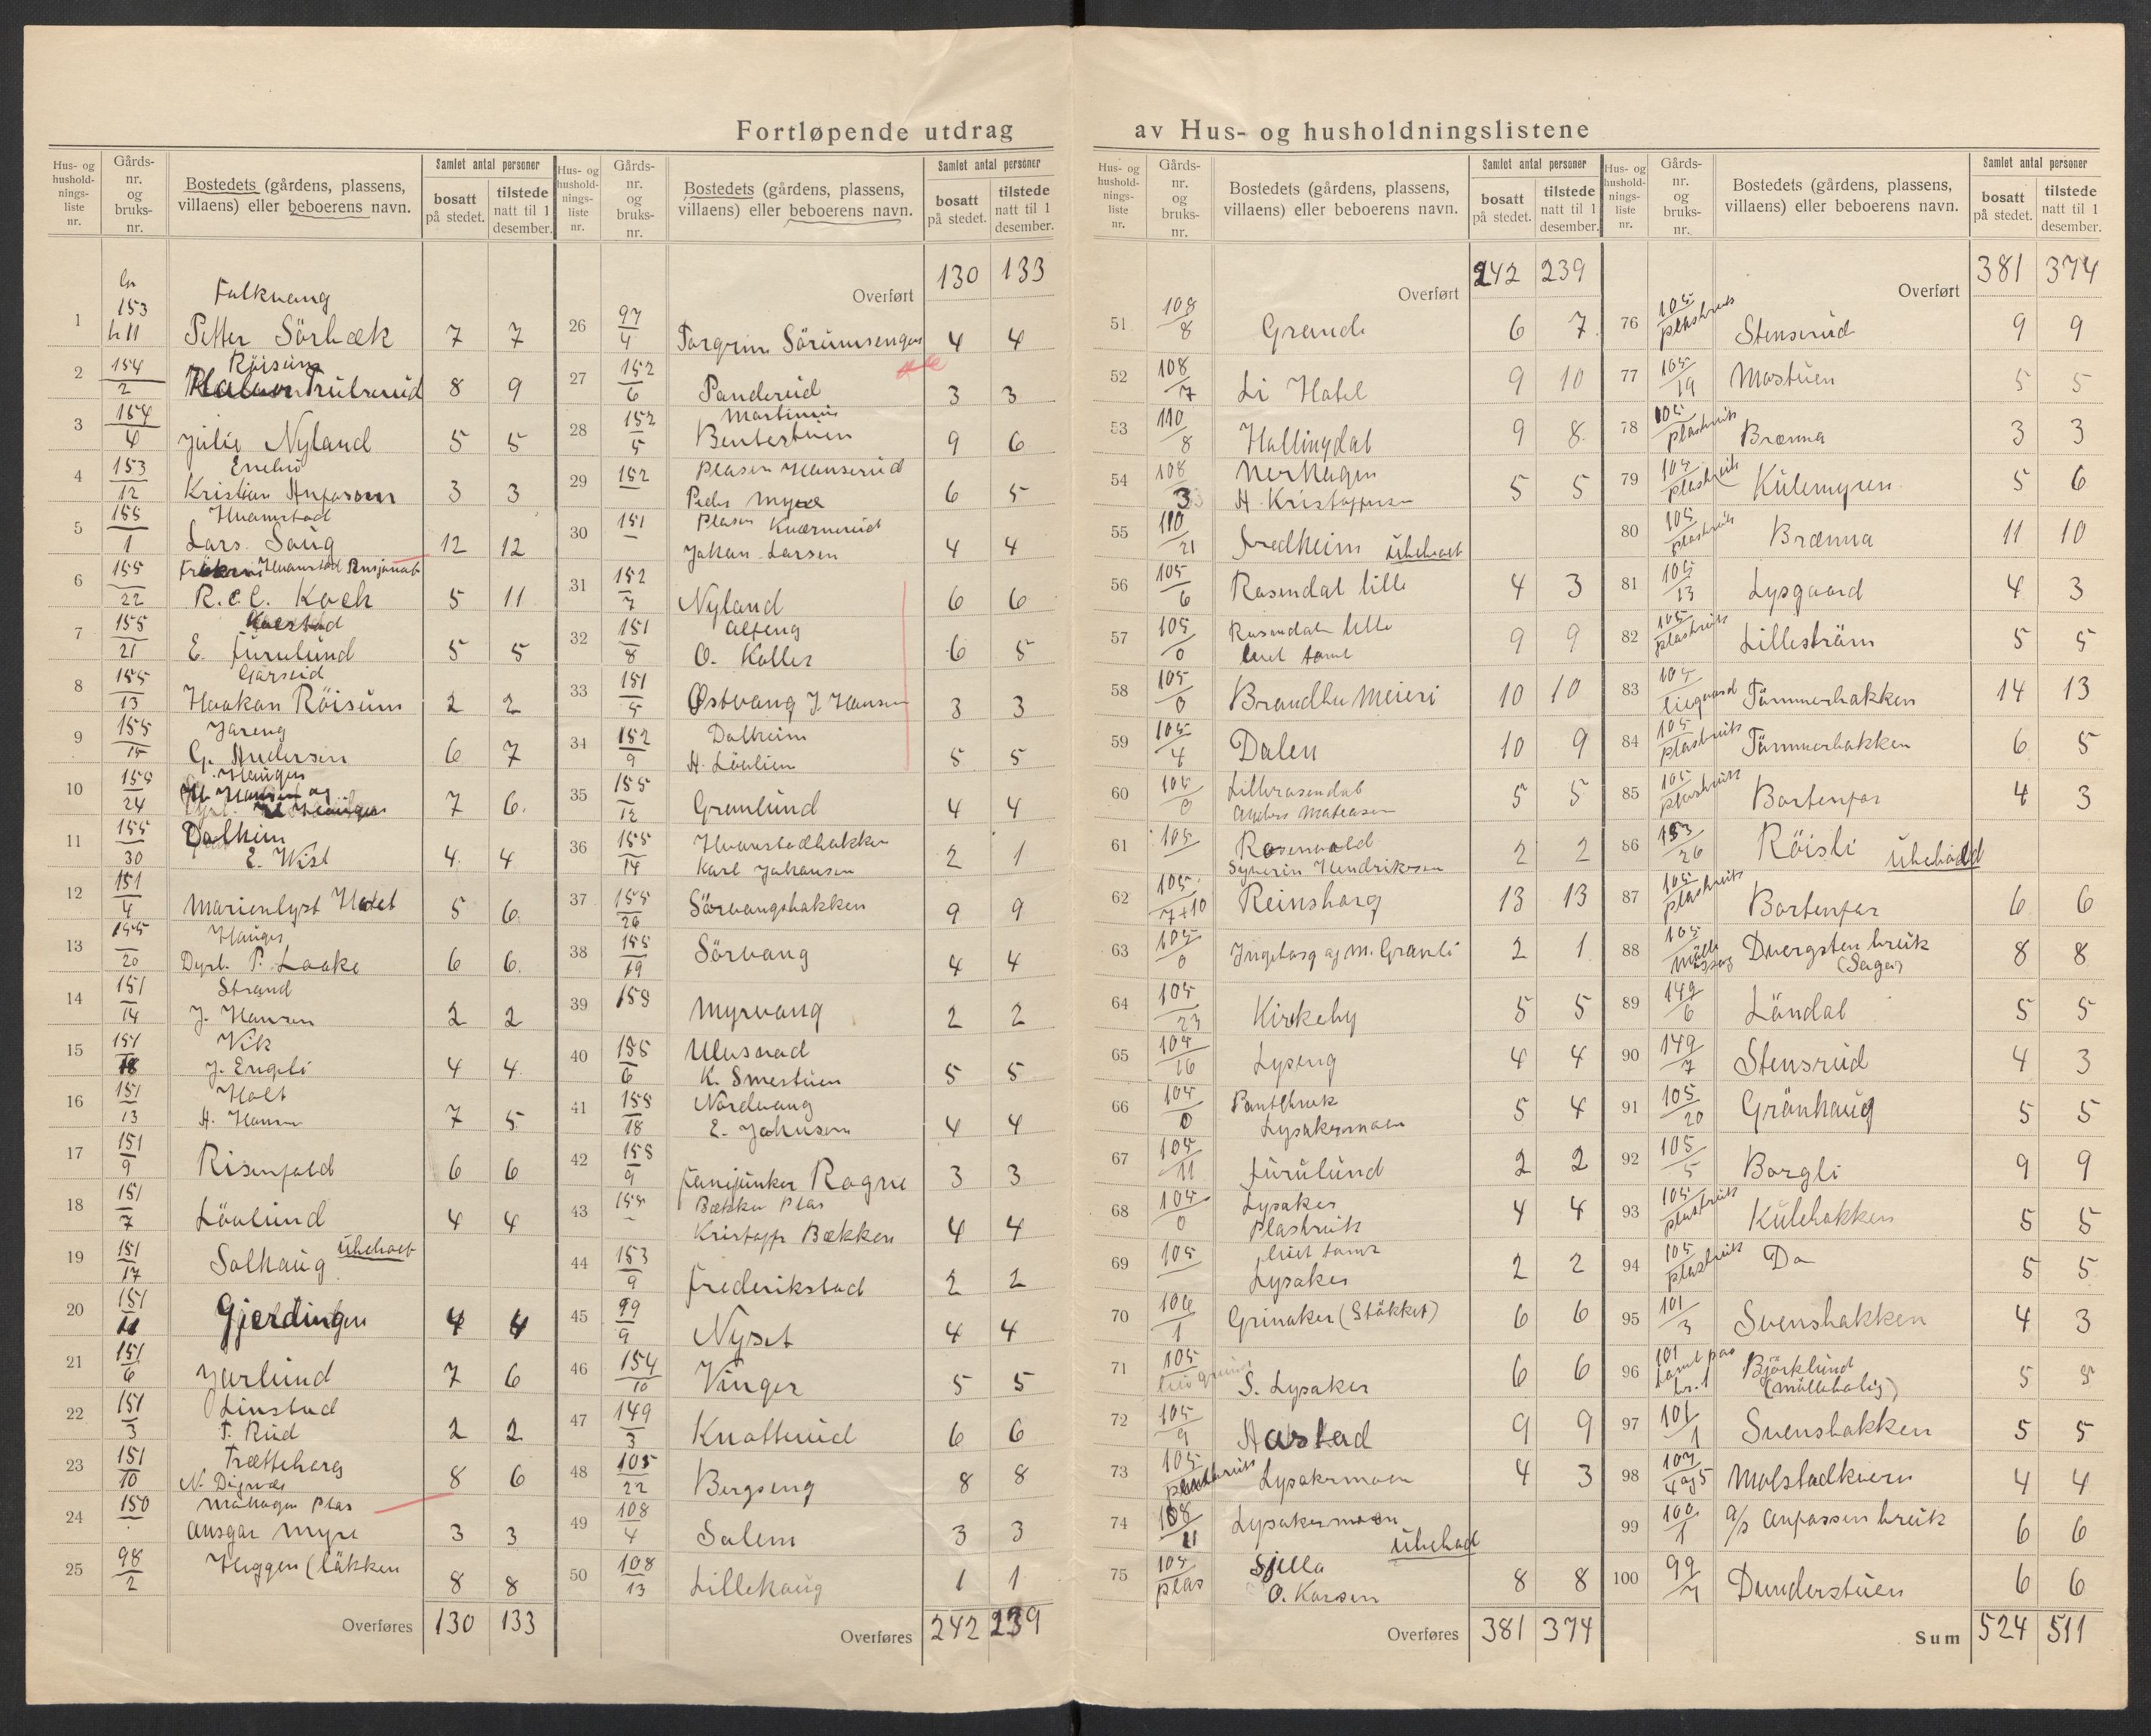 Fortløpende utdrag av Hus- og husholdningslistene
Hus- og hushold-nings-liste nr. | Gårds-nr. og bruks-nr. | Bostedets (gårdens, plassens, villaens) eller beboerens navn. | Samlet antal personer bosatt på stedet. | tilstede natt til 1 desember.
1 | 153 | Falkvang
Petter Sörbæk | 7 | 7
2 | 154/2 | Röisum
Trulsrud | 8 | 9
3 | 154/4 | Julie Nyland | 5 | 5
4 | 153/12 | Enebo
Kristian | 3 | 3
5 | 155/1 | Hvamstad
Lars | 12 | 12
6 | 155/22 | Hvamstad Pensjonat
R. e C. Koch | 5 | 11
7 | 155/21 | E. Furulund | 5 | 5
8 | 155/13 | Haakon Röisum | 2 | 2
9 | 155/15 | Jareng
G. Andersen | 6 | 7
10 | 155/24 | Haugen | 7 | 6
11 | 155/30 | Dalheim
E. Wist | 4 | 4
12 | 151/4 | Marienlyst Hotel | 5 | 6
13 | 155/20 | Hauger
Dyrl. P. Laake | 6 | 6
14 | 151/14 | Strand
J. Hansen | 2 | 2
15 | 151/18 | Vik
J. Engeli | 4 | 4
16 | 151/13 | Holt
H. Hansen | 7 | 5
17 | 151/9 | Risenfald | 6 | 6
18 | 151/7 | Lövlund | 4 | 4
19 | 151/17 | Solhaug ubeboet
20 | 151/11 | Gjerdingen | 4 | 4
21 | 151/6 | Jarlund | 7 | 6
22 | 151/3 | Linstad
T. Rud | 2 | 2
23 | 151/10 | Trætteberg
N. Dignæs | 8 | 6
24 | 150 | Plas
Ansgar Myre | 3 | 3
25 | 98/2 | Heggen (Låkken | 8 | 8
Overføres | 130 | 133
Hus- og hushold-nings-liste nr. | Gårds-nr. og bruks-nr. | Bostedets (gårdens, plassens, villaens) eller beboerens navn. | Samlet antal personer bosatt på stedet. | tilstede natt til 1 desember.
Overført | 130 | 133
26 | 97/4 | Torgrim Sörumsengen | 4 | 4
27 | 152/6 | Panderud | 3 | 3
28 | 152/5 | Martinius
Bentestuen | 9 | 6
29 | 152 | Plasen Hanserud
Peder Myre | 6 | 5
30 | 151 | Plasen Kværnerud
Johan Larsen | 4 | 4
31 | 152/7 | Nyland | 6 | 6
32 | 151/8 | Alfeng
O. Koller | 6 | 5
33 | 151/5 | Østvang J. Hansen | 3 | 3
34 | 152/9 | Dalheim
H. Lövlien | 5 | 5
35 | 155/12 | Granlund | 4 | 4
36 | 155/14 | Hvamstadbakken
Karl Johansen | 2 | 1
37 | 155/26 | Sörvangsbakken | 9 | 9
38 | 155/19 | Sörvang | 4 | 4
39 | 155 | Myrvang | 2 | 2
40 | 155/6 | Ulvsrad
K. Smestuen | 5 | 5
41 | 155/18 | Nordvang
E. Johnsen | 4 | 4
42 | 155/9 | Fanejunker Rogne | 3 | 3
43 | 155 | Bækken Plas
Kristoffer Bækken | 4 | 4
44 | 153/9 | Frederikstad | 2 | 2
45 | 99/9 | Nyset | 4 | 4
46 | 154/10 | Vinger | 5 | 5
47 | 149/3 | Knatterud | 6 | 6
48 | 105/22 | Bergseng | 8 | 8
49 | 108/4 | Salem | 3 | 3
50 | 108/13 | Lillehaug | 1 | 1
Overføres | 242 | 239
Hus- og hushold-nings-liste nr. | Gårds-nr. og bruks-nr. | Bostedets (gårdens, plassens, villaens) eller beboerens navn. | Samlet antal personer bosatt på stedet. | tilstede natt til 1 desember.
Overført | 242 | 239
51 | 108/8 | Grande | 6 | 7
52 | 108/7 | Li Hotel | 9 | 10
53 | 110/8 | Hallingdal | 9 | 8
54 | 108/3 | Nerhagen
H. Kristoffersen | 5 | 5
55 | 110/21 | Fredheim ubeboet
56 | 105/6 | Rosendal lille | 4 | 3
57 | 105/0 | Rosendal lille
leiet tomt | 9 | 9
58 | 105/0 | Brandbu Meieri | 10 | 10
59 | 105/4 | Dalen | 10 | 9
60 | 105/0 | Lillerosendal
Anders Mateasen | 5 | 5
61 | 105 | Rosenvold
Syverin Hendriksen | 2 | 2
62 | 105/7+10 | Reinsborg | 13 | 13
63 | 105/0 | Ingeborg og M. Granli | 2 | 1
64 | 105/23 | Kirkeby | 5 | 5
65 | 105/16 | Lyseng | 4 | 4
66 | 105/0 | Lysakermoen | 5 | 4
67 | 105/11 | Furulund | 2 | 2
68 | 105/0 | Lysaker
Plasbruk | 4 | 4
69 | 105 | leiet tomt
Lysaker | 2 | 2
70 | 106/1 | Grinaker (Stökket) | 6 | 6
71 | 105 | S. Lysaker | 6 | 6
72 | 105/9 | Aastad | 9 | 9
73 | 105 plasbruk | Lysakermoen | 4 | 3
74 | 108/11 | Lysakermoen ubebod
75 | 105 plas | Sjella
O. Karsen | 8 | 8
Overføres | 381 | 374
Hus- og hushold-nings-liste nr. | Gårds-nr. og bruks-nr. | Bostedets (gårdens, plassens, villaens) eller beboerens navn. | Samlet antal personer bosatt på stedet. | tilstede natt til 1 desember.
Overført | 381 | 374
76 | 105 plasbruk | Stensrud | 9 | 9
77 | 105/19 | Mostuen | 5 | 5
78 | 105 plasbruk | Brænna | 3 | 3
79 | 105 plasbruk | Kulemyren | 5 | 6
80 | 105 plasbruk | Brænna | 11 | 10
81 | 105/13 | Lysgaard | 4 | 3
82 | 105 plasbruk | Lilleström | 5 | 5
83 | 105 | Tömmerbakken | 14 | 13
84 | 105 plasbruk | Tömmerbakken | 6 | 5
85 | 105 plasbruk | Bortenfor | 4 | 3
86 | 153/26 | Röisli ubebodd
87 | 105 plasbruk | Bortenfor | 6 | 6
88 | 105 Mölle og sag | Dvergsten bruk
(Sagen) | 8 | 8
89 | 149/6 | Löndal | 5 | 5
90 | 149/7 | Stensrud | 4 | 3
91 | 105/20 | Grönhaug | 5 | 5
92 | 105/5 | Borgli | 9 | 9
93 | 105 plasbruk | Kulebakken | 5 | 5
94 | 105 plasbruk | Do | 5 | 5
95 | 101/3 | Svensbakken | 4 | 3
96 | 101 tomt paa br. 1 | Björklund
(Möllebolig) | 5 | 5
97 | 101/1 | Svensbakken | 5 | 5
98 | 107/4 og 5 | Molstadkvern | 4 | 4
99 | 100/1 | a/s bruk | 6 | 6
100 | 99/7 | Dunderstuen | 6 | 6
Sum | 524 | 511